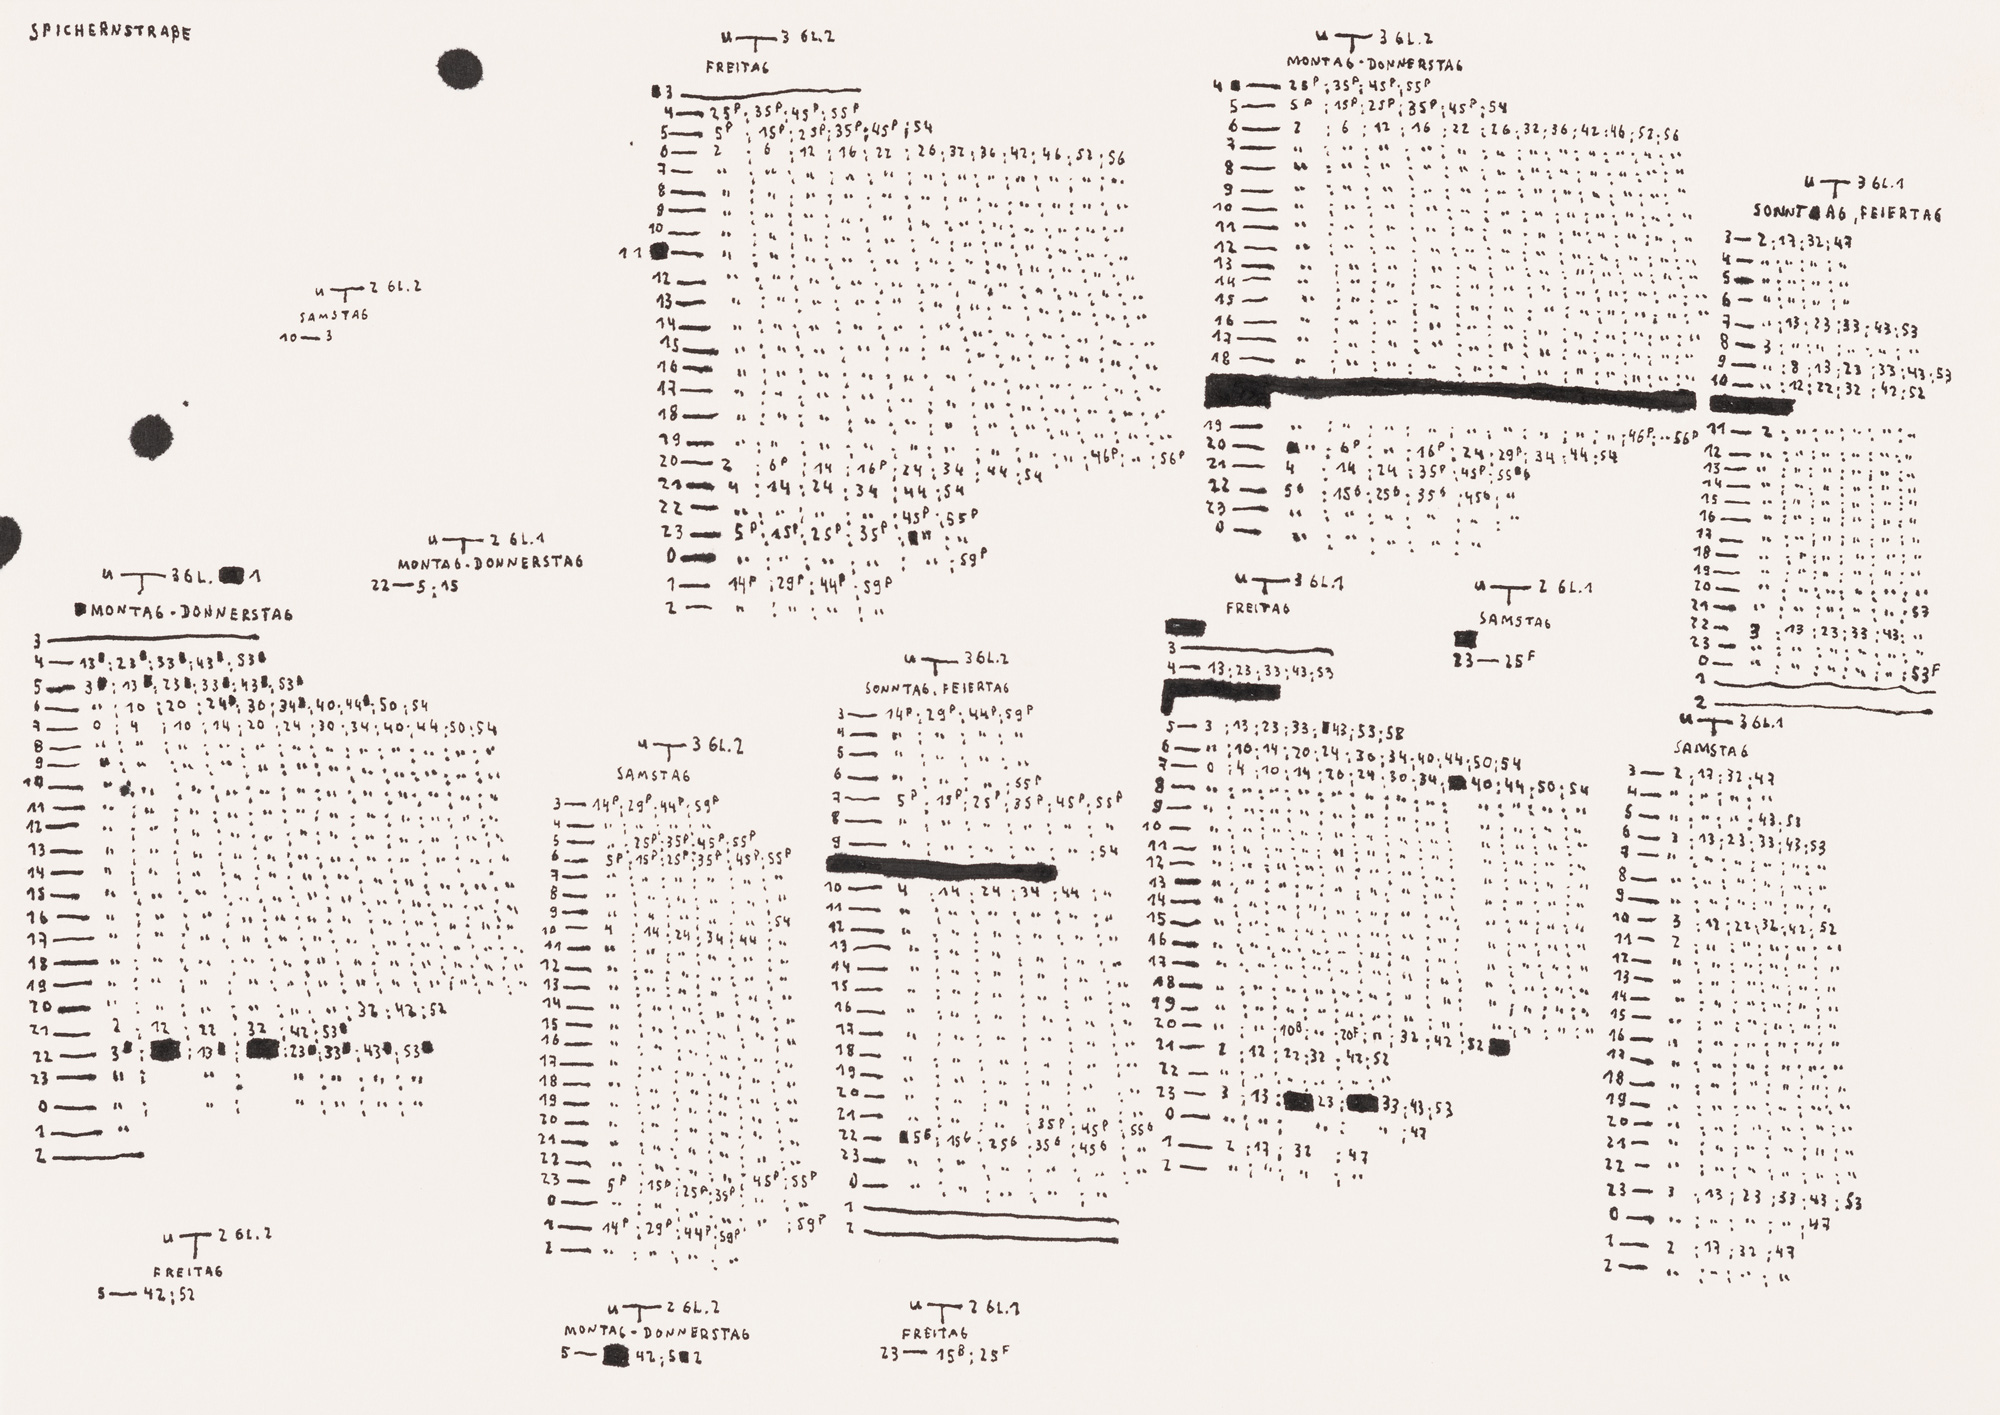 SPICHERNSTRAßE
U 3 GL.2
FREITAG
3
4 — 25P ; 35P ; 45P ; 55P
5 — 5P ; 15P ; 25P ; 35P ; 45P ; 54
6 — 2 ; 6 ; 12 ; 16 ; 22 ; 26 ; 32 ; 36 ; 42 ; 46 ; 52 ; 56
7 —
8 —
9 —
10 —
11 —
12 —
13 —
14 —
15 —
16 —
17 —
18 —
19 —
20 — 2 ; 6P ; 14 ; 16P ; 24 ; 34 ; 44 ; 54
21 — 4 ; 14 ; 24 ; 34 ; 44 ; 54
22 — " ; " ; " ; " ; 45P ; 55P
23 — 5P ; 15P ; 25P ; 35P ; "
0 — 59P
1 — 14P ; 29P ; 44P ; 59P
2 — " ; " ; " ; "
U 3 GL.2
MONTAG-DONNERSTAG
4 — 25P ; 35P ; 45P ; 55P
5 — 5P ; 15P ; 25P ; 35P ; 45P ; 54
6 — 2 ; 6 ; 12 ; 16 ; 22 ; 26 ; 32 ; 36 ; 42 ; 46 ; 52 ; 56
7 —
8 —
9 —
10 —
11 —
12 —
13 —
14 —
15 —
16 —
17 —
18 —
19 — 46P ; " ; 56P
20 — " ; 6P ; " ; 16P ; 24 ; 29P ; 34 ; 44 ; 54
21 — 4 ; 14 ; 24 ; 35P ; 45P ; 55G
22 — 5G ; 15G ; 25G ; 35G ; 45G ; "
23 —
0 —
U 3 GL.1
SONNTAG, FEIERTAG
3 — 2 ; 17 ; 32 ; 47
4 — " ; " ; " ; "
5 — " ; " ; " ; "
6 — " ; " ; " ; "
7 — " ; 13 ; 23 ; 33 ; 43 ; 53
8 — 3 ; " ; " ; " ; " ; "
9 — " ; 8 ; 13 ; 23 ; 33 ; 43 ; 53
10 — " ; 12 ; 22 ; 32 ; 42 ; 52
11 — 2 ; " ; " ; " ; " ; "
12 —
13 —
14 —
15 —
16 —
17 —
18 —
19 —
20 —
21 — 53
22 — 3 ; 13 ; 23 ; 33 ; 43 ; "
23 —
0 — 53F
1
2
U 2 GL.2
SAMSTAG
10 — 3
U 2 GL.1
MONTAG-DONNERSTAG
22 — 5 ; 15
U 3 GL. 1
MONTAG-DONNERSTAG
3
4 — 13 ; 23 ; 33 ; 43 ; 53
5 — 3 ; 13 ; 23 ; 33 ; 43 ; 53
6 — " ; 10 ; 20 ; 24 ; 30 ; 34 ; 40 ; 44 ; 50 ; 54
7 — 0 ; 4 ; 10 ; 14 ; 20 ; 24 ; 30 ; 34 ; 40 ; 44 ; 50 ; 54
8 —
9 —
10 —
11 —
12 —
13 —
14 —
15 —
16 —
17 —
18 —
19 —
20 — 32 ; 42 ; 52
21 — 2 ; 12 ; 22 ; 32 ; 42 ; 53
22 — 3 ; 13 ; 23 ; 33 ; 43 ; 53
23 —
0 —
1 — "
2
U 3 GL.1
FREITAG
3
4 — 13 ; 23 ; 33 ; 43 ; 53
5 — 3 ; 13 ; 23 ; 33 ; 43 ; 53 ; 58
6 — " ; 10 ; 14 ; 20 ; 24 ; 30 ; 34 ; 40 ; 44 ; 50 ; 54
7 — 0 ; 4 ; 10 ; 14 ; 20 ; 24 ; 30 ; 34 ; 40 ; 44 ; 50 ; 54
8 —
9 —
10 —
11 —
12 —
13 —
14 —
15 —
16 —
17 —
18 —
19 —
20 — " ; " ; 10B ; " ; 20F ; " ; 32 ; 42 ; 52
21 — 2 ; 12 ; 22 ; 32 ; 42 ; 52
22 —
23 — 3 ; 13 ; 23 ; 33 ; 43 ; 53
0 — 47
1 — 2 ; 17 ; 32 ; 47
2 — " ; " ; " ; "
U 2 GL.1
SAMSTAG
23 — 25F
U 3 GL.2
SONNTAG, FEIERTAG
3 — 14P ; 29P ; 44P ; 59P
4 — " ; " ; " ; "
5 — " ; " ; " ; "
6 — 55P
7 — 5P ; 15P ; 25P ; 35P ; 45P ; 55P
8 —
9 — 54
10 — 4 ; 14 ; 24 ; 34 ; 44 ; "
11 —
12 —
13 —
14 —
15 —
16 —
17 —
18 —
19 —
20 —
21 — 35P ; 45P ; 55G
22 — 5G ; 15G ; 25G ; 35G ; 45G
23 —
0 —
1
2
U 3 GL.2
SAMSTAG
3 — 14P ; 29P ; 44P ; 59P
4 —
5 — " ; 25P ; 35P ; 45P ; 55P
6 — 5P ; 15P ; 25P ; 35P ; 45P ; 55P
7 —
8 —
9 — 54
10 — 4 ; 14 ; 24 ; 34 ; 44 ; "
11 —
12 —
13 —
14 —
15 —
16 —
17 —
18 —
19 —
20 —
21 —
22 —
23 — 5P ; 15P ; 25P ; 35P ; 45P ; 55P
0 —
1 — 14P ; 29P ; 44P ; 59P
2 — " ; " ; " ; "
U 3 GL.1
SAMSTAG
3 — 2 ; 17 ; 32 ; 47
4 — " ; " ; " ; "
5 — 43 ; 53
6 — 3 ; 13 ; 23 ; 33 ; 43 ; 53
7 —
8 —
9 —
10 — 3 ; 12 ; 22 ; 32 ; 42 ; 52
11 — 2 ; " ; " ; " ; " ; "
12 —
13 —
14 —
15 —
16 —
17 —
18 —
19 —
20 —
21 —
22 —
23 — 3 ; 13 ; 23 ; 33 ; 43 ; 53
0 — " ; " ; " ; " ; 47
1 — 2 ; 17 ; 32 ; 47
2 — " ; " ; " ; "
U 2 GL.2
FREITAG
5 — 42 ; 52
U 2 GL.2
MONTAG-DONNERSTAG
5 — 42 ; 5 2
U 2 GL.1
FREITAG
23 — 15B ; 25F